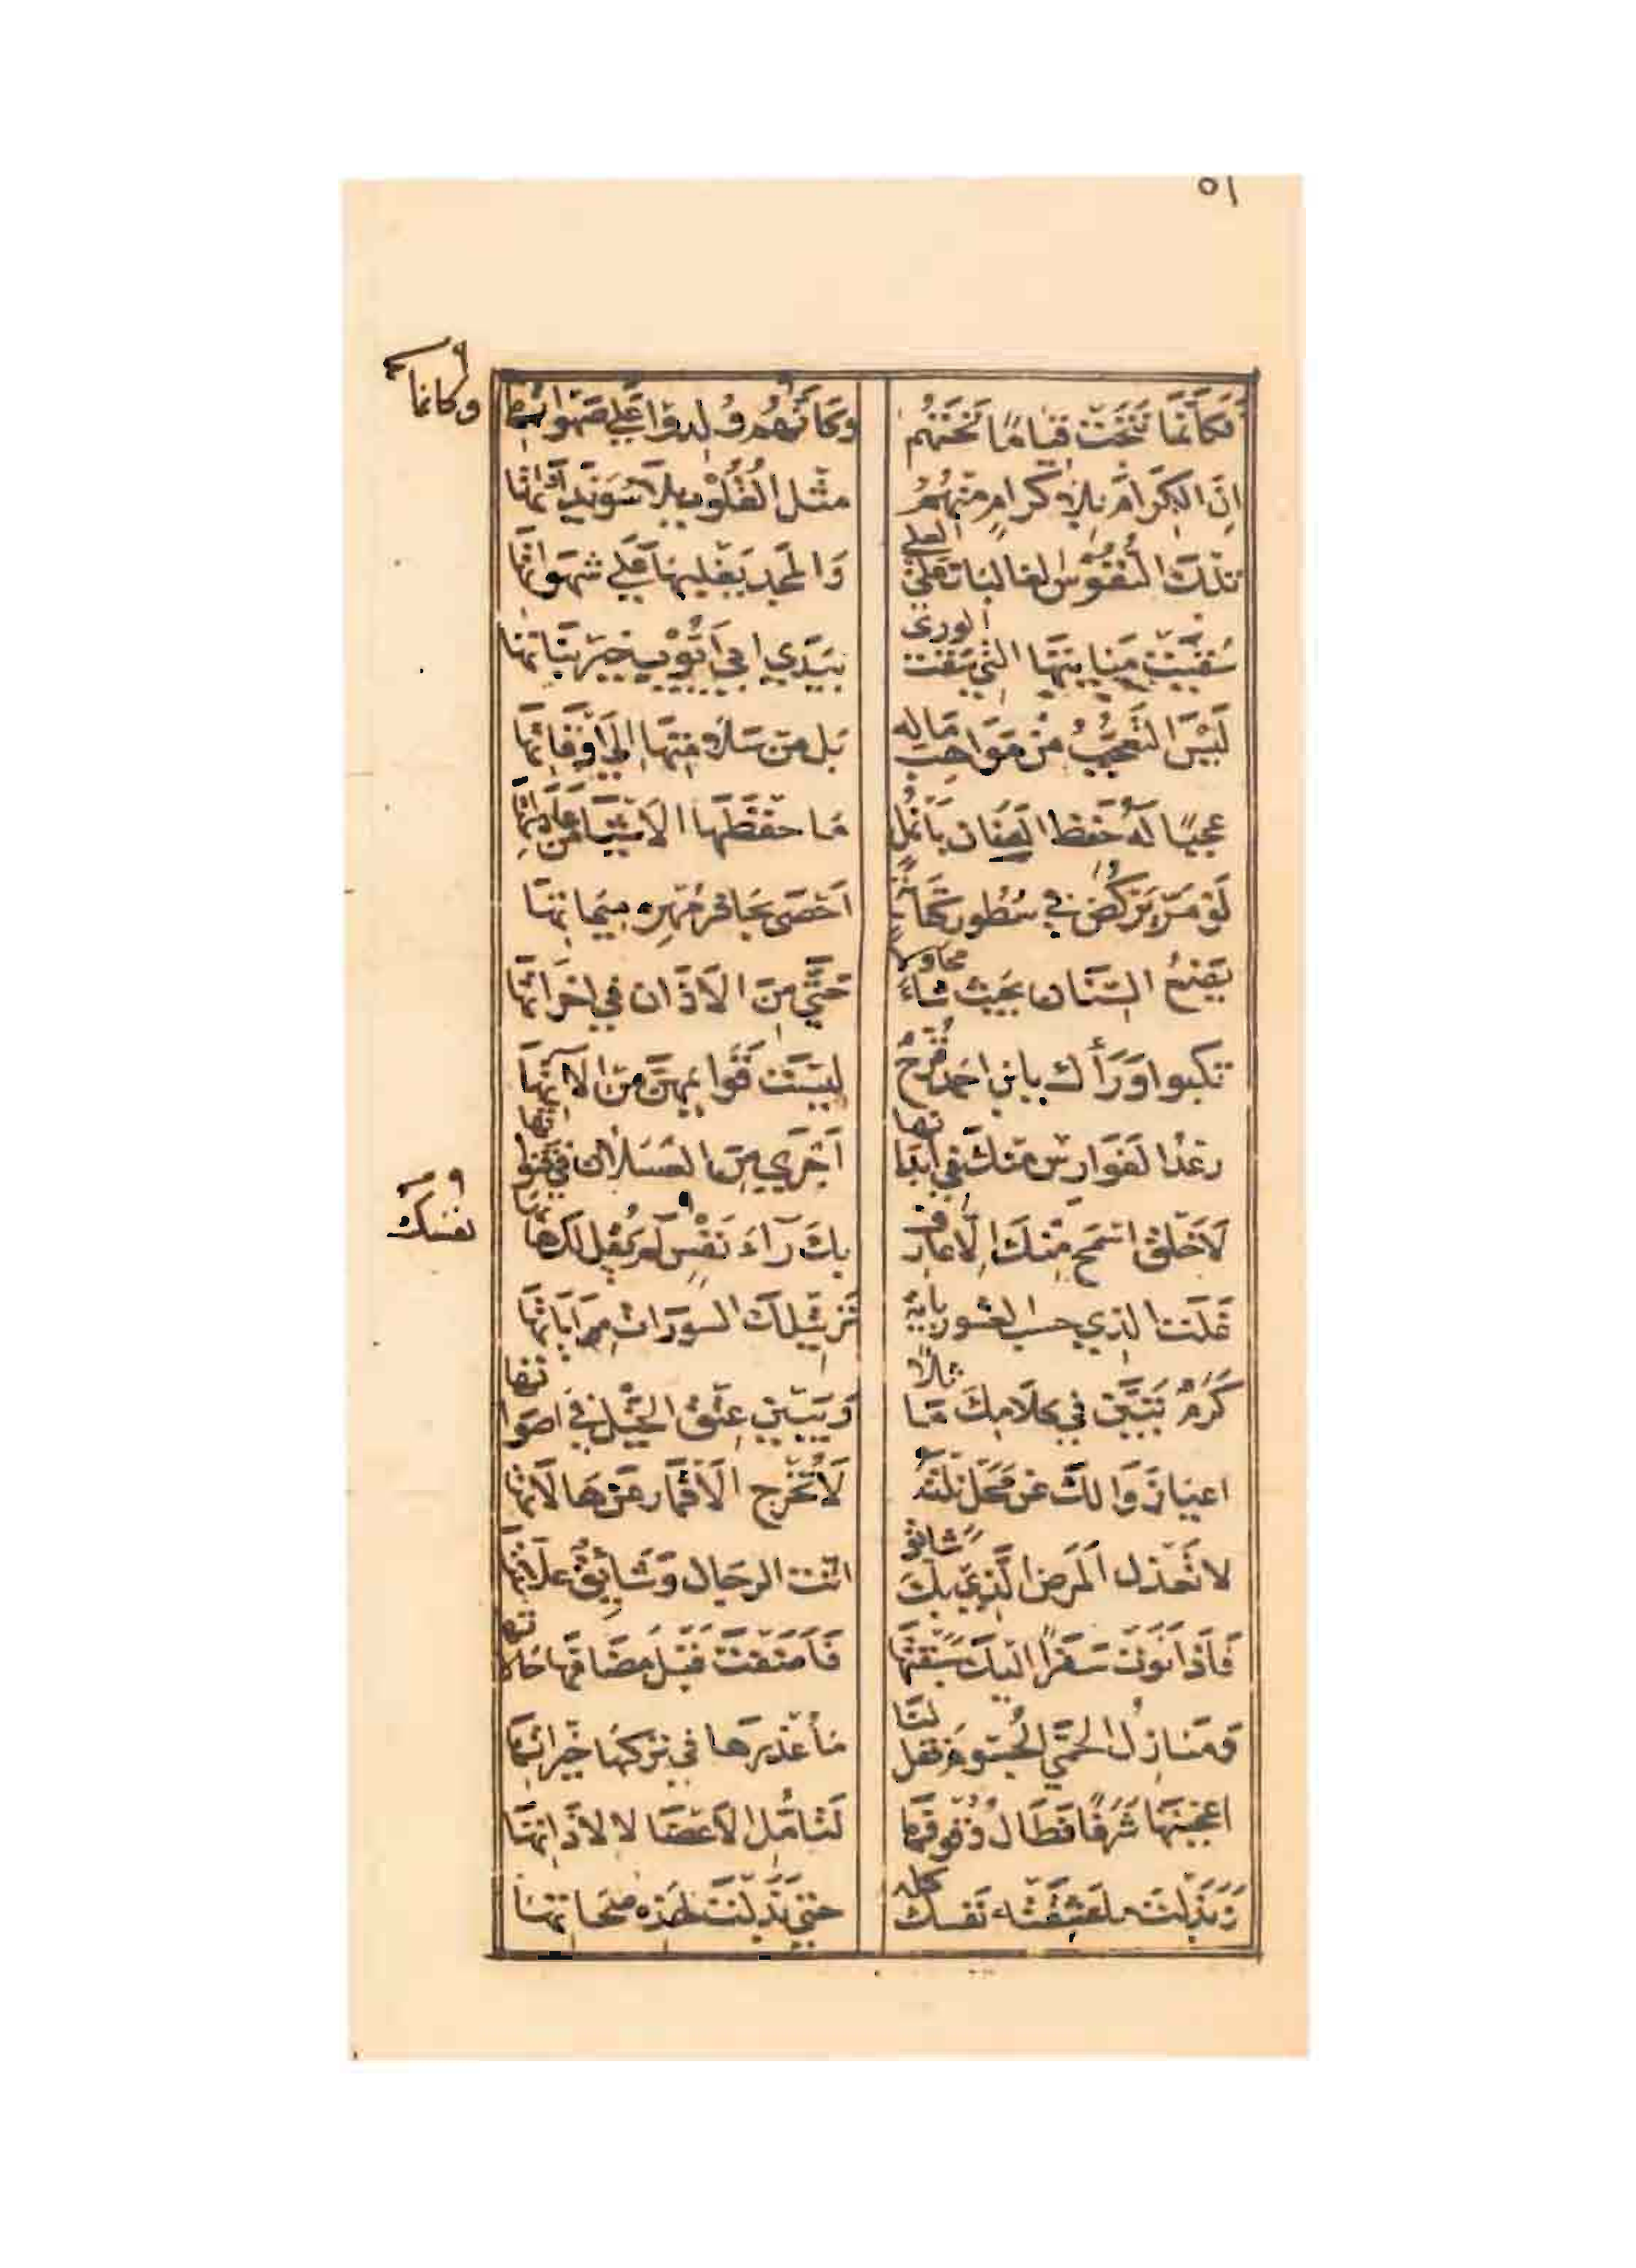 ٥١
فَكَأَنَّمَا نُتِجَتْ قِيَامًا تَحْتَهُمْ وَكَأَنَّهُمْ وُلِدُوا عَلَى صَهَوَاتِهَا
وكانما
اِنَّ الكِرَامَ بِلَا كِرَامٍ مِنْهُمُ مِثْلُ القُلُوْبِ بِلَا سُوَيْدَآوَاتِهَا
تِلْكَ النُّفُوْسُ الغَالِبَاتُ عَلَى العلى وَالمَجْدُ يَغْلِبُهَا عَلَى شَهَوَاتِهَا
سُقِيَتْ مَنَابِتُهَا الَّتِي سَقَتِ الورى بِيَدَي ابي اَيُّوْبَ خَيْرِ نَبَاتِهَا
لَيْسَ التَّعَجُّبُ مِنْ مَوَاهِبِ مَالِهِ بَلْ مِنْ سَلَامَتِهَا اِلَى اَوْقَاتِهَا
عجبًا لَهُ حَفِظَ العِنَانَ بِاَنْمُلٍ مَا حِفْظُهَا الاَشْيَاءَ مِنْ عَادَاتِهَا
لَوْ مَرَّ يَرْكُضُ في سُطُورِ كِتَابَةٍ اَحْصَى بِحَافِرِ مُهْرِهِ مِيمَاتِهَا
يَضَعُ السِّنَانَ بِحَيْثُ شَاءَ محاولا حَتَّى مِنَ الآذَانِ فِي اَخْرَاتِهَا
تكبوا وَرَاءَك يا بن احمَد قُرَّحٌ لَيْسَتْ قَوَائِمُهُنَّ مِنْ آلاتِهَا
رِعَدُ الفَوَارِسِ مِنْكَ فِي اَبْدَانها اَجْرَى مِنَ العَسَلَانِ فِي قَنَوَاتها
لَا خَلْقَ اَسْمَحُ مِنْكَ اِلَّا عَارِفٌ بِكَ رَآءَ نَفْسَكَ لَمْ يَقُلْ لَكَ هَاتِهَا
نفسك
غَلِتَ الَّذِي حسب العُشورَ بآيةٍ تَرْتِيلُكَ السُّورَاتِ مِن آيَاتِهَا
كَرَمٌ تَبَيَّنَ فِي كَلَامِكَ مَاثلًا وَيَبِينُ عِتْقُ الخَيْلِ فِي اَصْوَاتها
اعيَا زَوَالُكَ عَنْ مَحَلٍّ نِلْتَهُ لَا تَخْرُجُ الاَقْمَارُ عَنْ هَالَاتِهَا
لا نَعْذِلُ المَرَضَ الَّذِي بِكَ شَائِقٌ اَنْتَ الرِّجَالَ وَشَائِقٌ عِلَّاتِهَا
فَاِذَا نَوَتْ سَفَرًا اِلَيْكَ سَبَقْتَهَا فَاَضَفْتَ قَبْلَ مُضَافِهَا حَالَاتها
وَمَنَازِلُ الحُمَّى الجُسُومُ فَقُلْ لَنَا مَا عُذْرُهَا فِي تَرْكِهَا خَيْرَاتِهَا
اعجبتَهَا شَرَفًا فَطَالَ وُقُوفُهَا لِتَأَمُّلِ الاَعْضَا لا لاَذَاتِهَا
وَبَذَلْتَ مَا عَشِقَتْهُ نَفْسُكَ كله حتى بَذَلْتَ لِهَذِهِ صِحَّاتِهَا